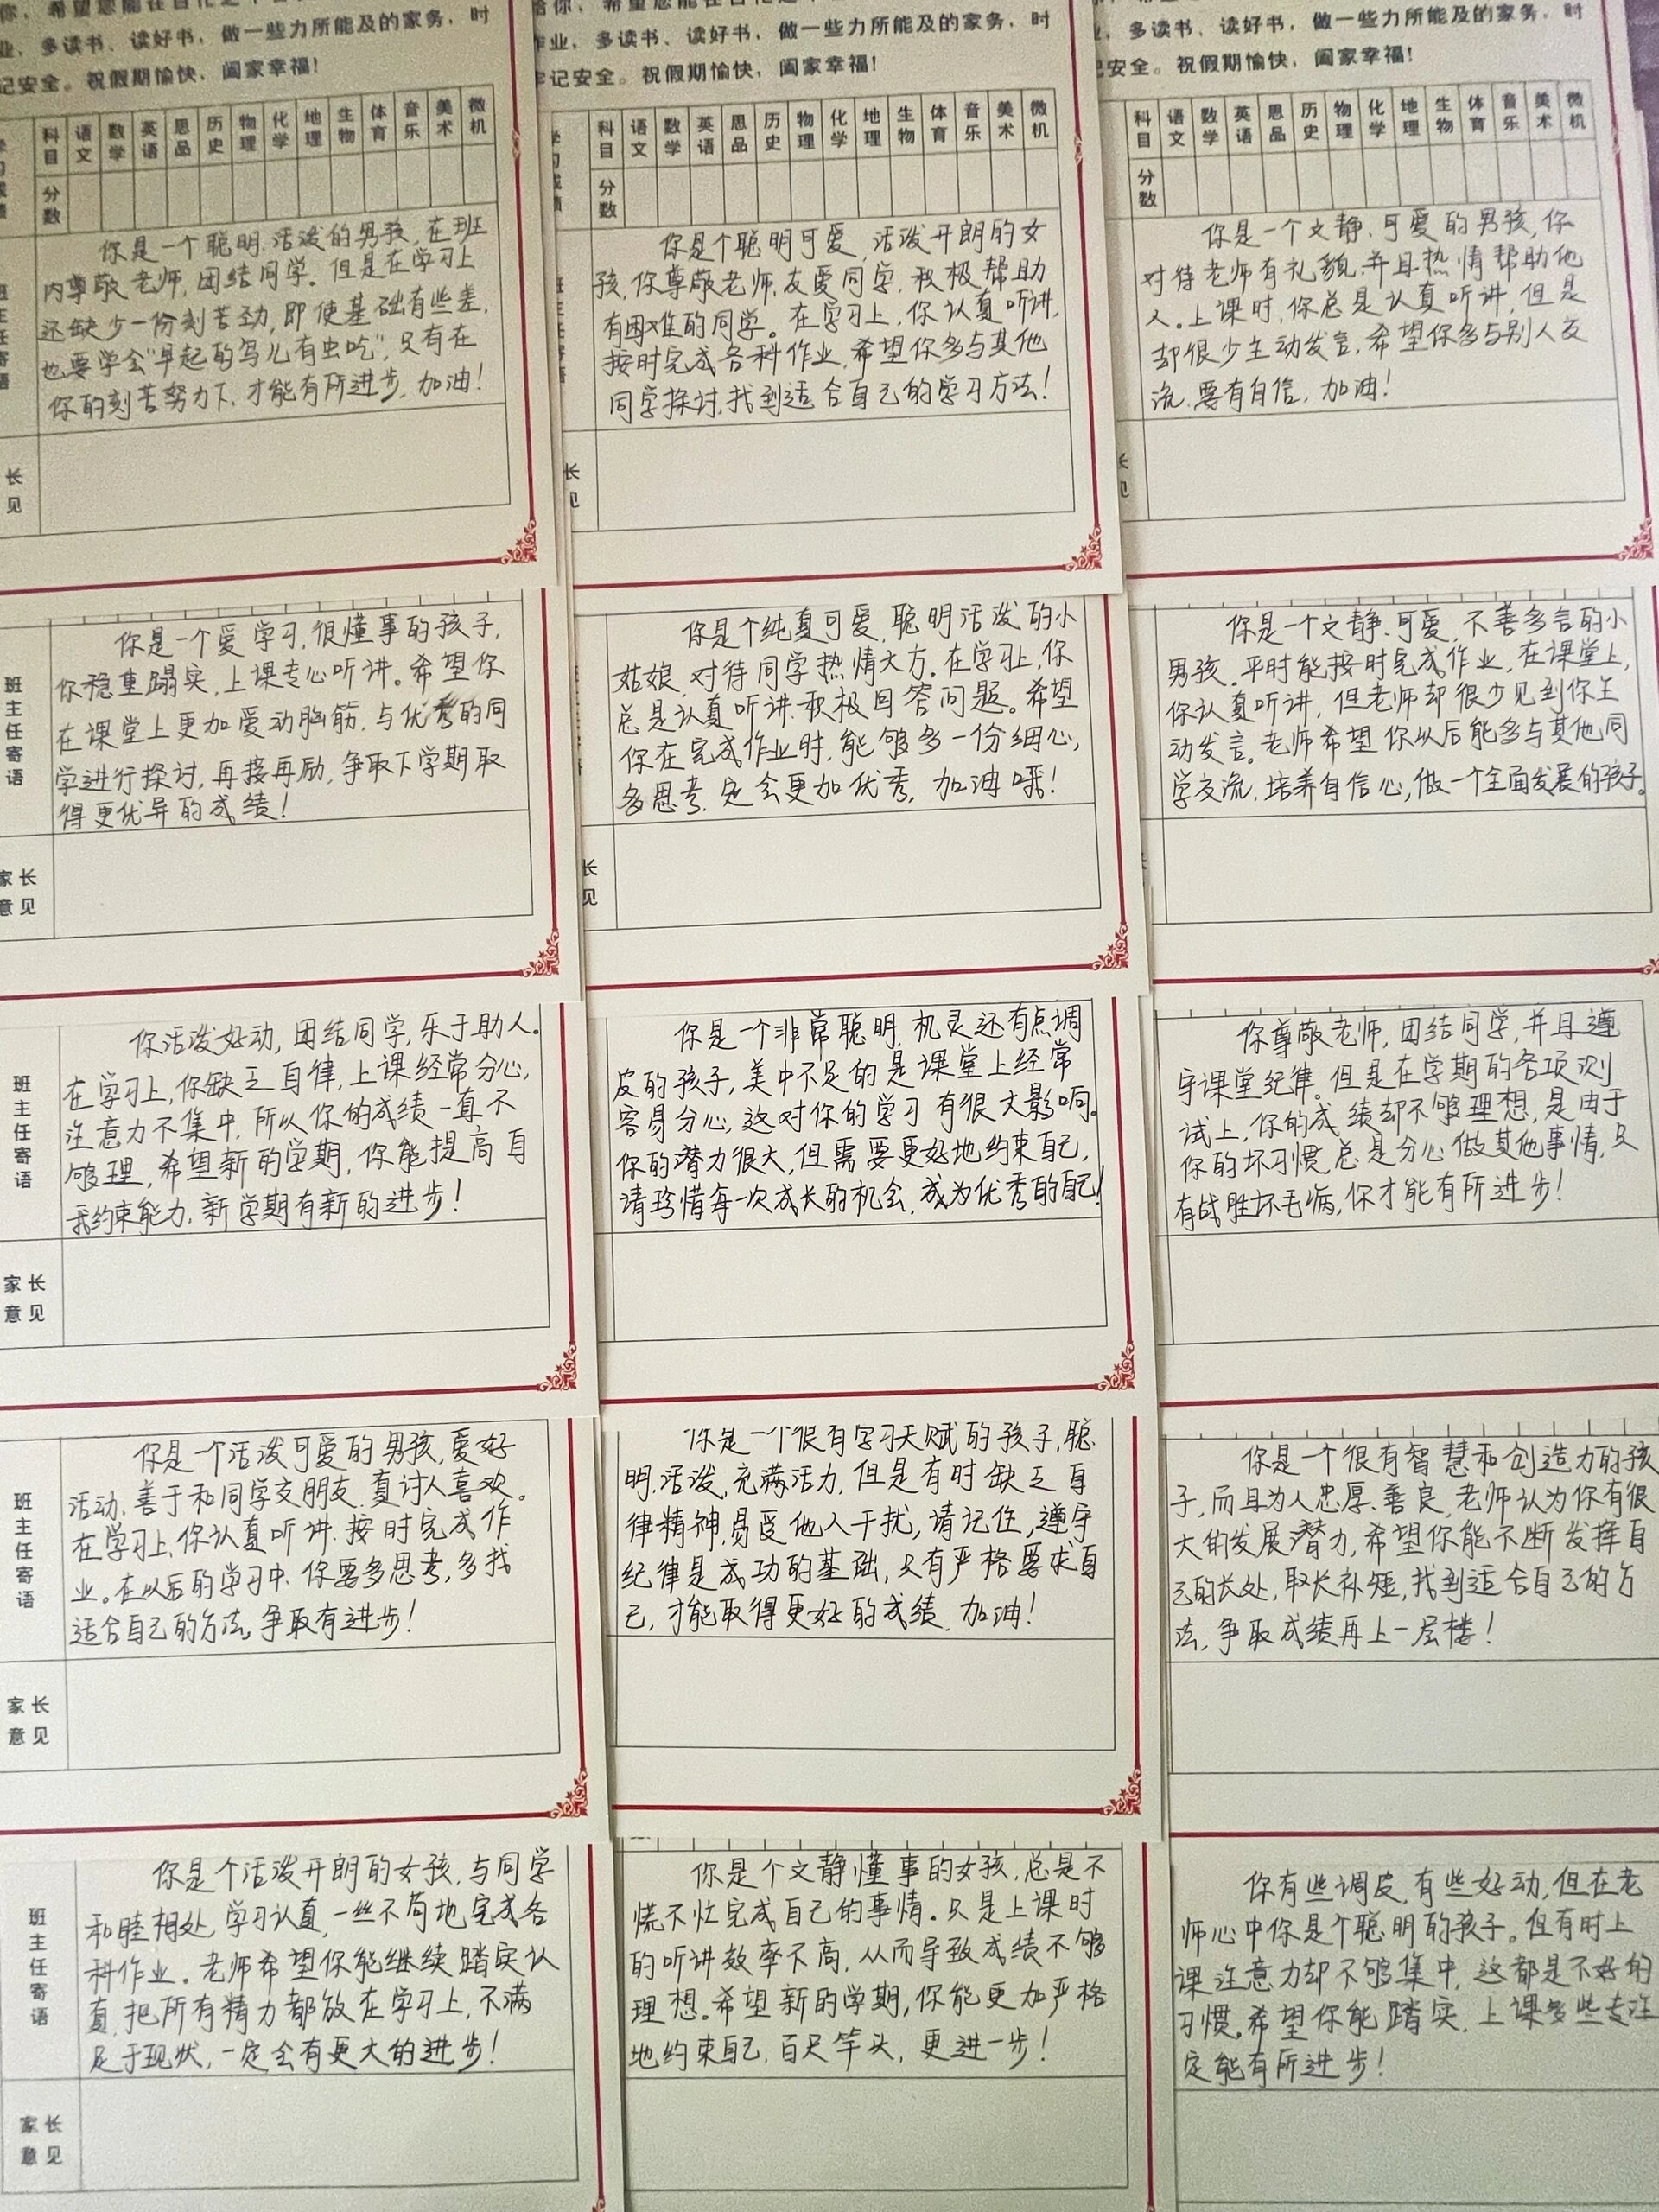 业，多读书、读好书，做一些力所能及的家务，时
记安全。祝假期愉快，阖家幸福！
科目 语文 数学 英语 思品 历史 物理 化学 地理 生物 体育 音乐 美术 微机
分数
你是一个聪明,活泼的男孩,在班
内尊敬老师,团结同学。但是在学习上
还缺少一份刻苦劲,即使基础有些差,
也要学会"早起的鸟儿有虫吃",只有在
你的刻苦努力下,才能有所进步,加油!
长
见
作业，多读书、读好书，做一些力所能及的家务，时
牢记安全。祝假期愉快，阖家幸福！
科目 语文 数学 英语 思品 历史 物理 化学 地理 生物 体育 音乐 美术 微机
分数
你是个聪明可爱,活泼开朗的女
孩,你尊敬老师,友爱同学,积极帮助
有困难的同学。在学习上,你认真听讲,
按时完成各科作业,希望你多与其他
同学探讨,找到适合自己的学习方法!
长
见
多读书、读好书，做一些力所能及的家务，时
记安全。祝假期愉快，阖家幸福！
科目 语文 数学 英语 思品 历史 物理 化学 地理 生物 体育 音乐 美术 微机
分数
你是一个文静、可爱的男孩,你
对待老师有礼貌,并且热情帮助他
人。上课时,你总是认真听讲,但是
却很少主动发言,希望你多与别人交
流,要有自信,加油!
班主任寄语
你是一个爱学习,很懂事的孩子,
你稳重踏实,上课专心听讲。希望你
在课堂上更加爱动脑筋,与优秀的同
学进行探讨,再接再励,争取下学期取
得更优异的成绩!
家长
意见
你是个纯真可爱,聪明活泼的小
姑娘,对待同学热情大方。在学习上,你
总是认真听讲,积极回答问题。希望
你在完成作业时,能够多一份细心,
多思考,定会更加优秀,加油哦!
长
见
你是一个文静、可爱,不善多言的小
男孩。平时能按时完成作业,在课堂上,
你认真听讲,但老师却很少见到你主
动发言。老师希望你以后能多与其他同
学交流,培养自信心,做一个全面发展的孩子。
班主任寄语
你活泼好动,团结同学,乐于助人。
在学习上,你缺乏自律,上课经常分心,
注意力不集中,所以你的成绩一直不
够理,希望新的学期,你能提高自
我约束能力,新学期有新的进步!
家长
意见
你是一个非常聪明,机灵还有点调
皮的孩子,美中不足的是课堂上经常
容易分心,这对你的学习有很大影响。
你的潜力很大,但需要更好地约束自己,
请珍惜每一次成长的机会,成为优秀的自己!
你尊敬老师,团结同学,并且遵
守课堂纪律。但是在学期的各项测
试上,你的成绩却不够理想,是由于
你的坏习惯总是分心做其他事情,只
有战胜坏毛病,你才能有所进步!
班主任寄语
你是一个活泼可爱的男孩,爱好
活动,善于和同学交朋友,真讨人喜欢。
在学习上,你认真听讲,按时完成作
业。在以后的学习中,你要多思考,多找
适合自己的方法,争取有进步!
家长
意见
你是一个很有学习天赋的孩子,聪
明,活泼,充满活力,但是有时缺乏自
律精神,易受他人干扰,请记住,遵守
纪律是成功的基础,只有严格要求自
己,才能取得更好的成绩,加油!
你是一个很有智慧和创造力的孩
子,而且为人忠厚、善良,老师认为你有很
大的发展潜力,希望你能不断发挥自
己的长处,取长补短,找到适合自己的方
法,争取成绩再上一层楼!
班主任寄语
你是个活泼开朗的女孩,与同学
和睦相处,学习认真,一丝不苟地完成各
科作业。老师希望你能继续踏实认
真,把所有精力都放在学习上,不满
足于现状,一定会有更大的进步!
家长
意见
你是个文静懂事的女孩,总是不
慌不忙完成自己的事情。只是上课时
的听讲效率不高,从而导致成绩不够
理想。希望新的学期,你能更加严格
地约束自己,百尺竿头,更进一步!
你有些调皮,有些好动,但在老
师心中你是个聪明的孩子。但有时上
课注意力却不够集中,这都是不好的
习惯。希望你能踏实,上课多些专注
定能有所进步!